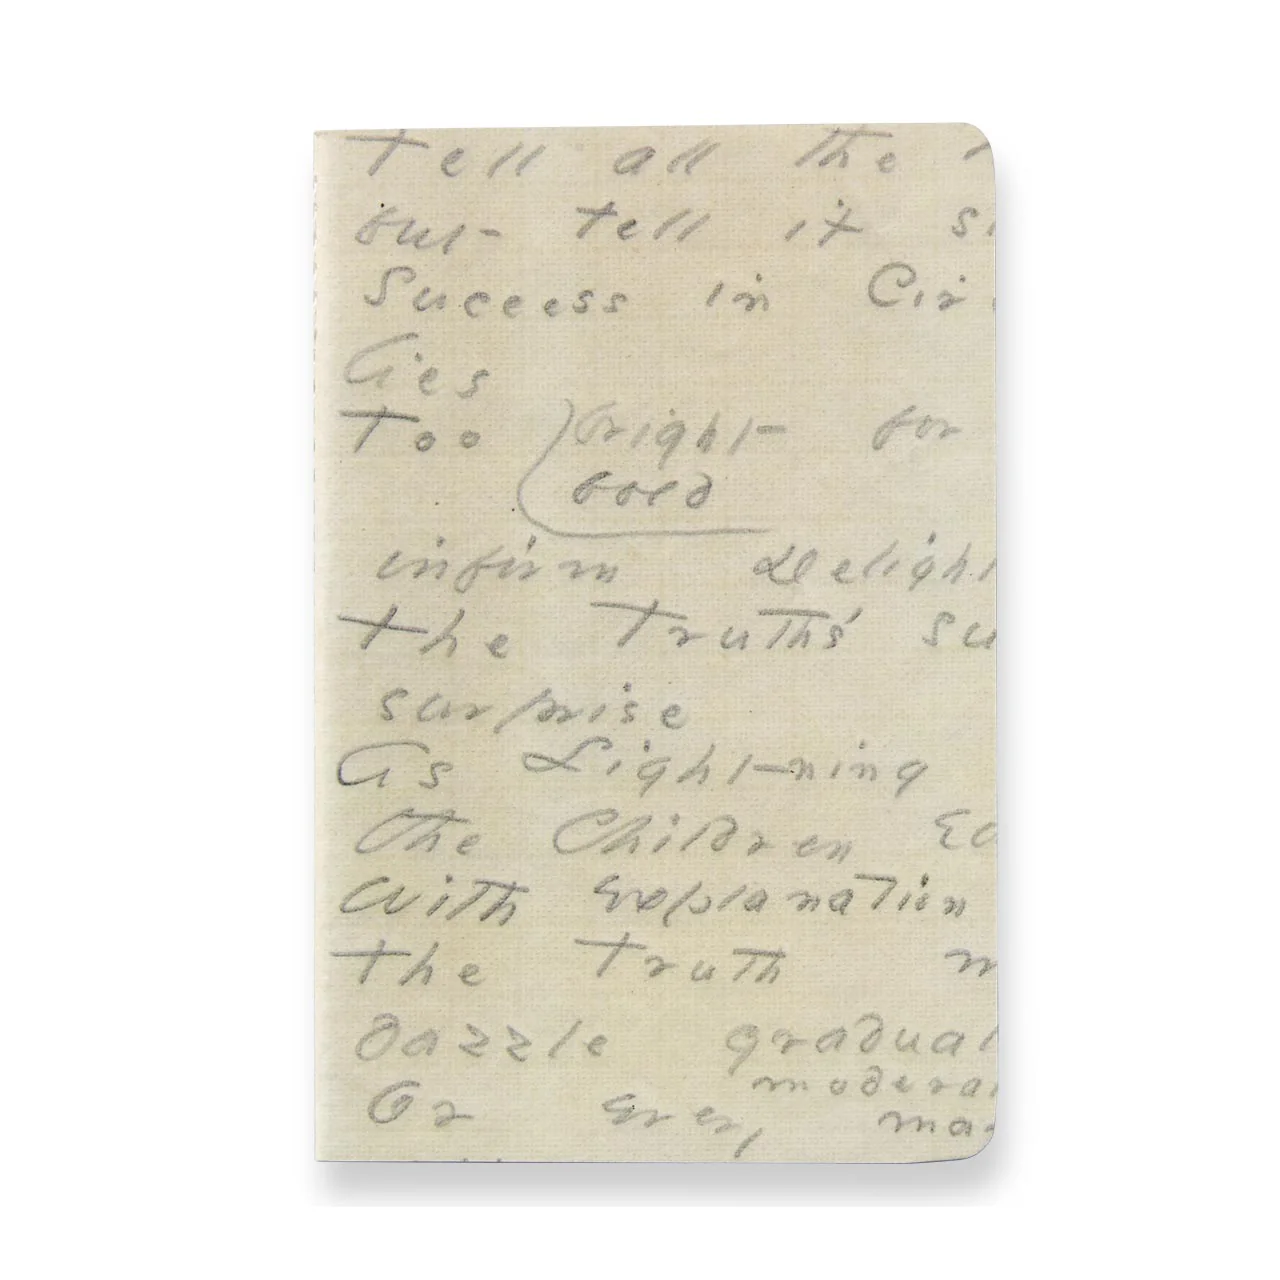 Tell all the T
but- tell it sl
Success in Cir
lies
Too bright- for
bold
infirm Delight
the Truth's su
surprise
As Lightning
the Children Ea
With explanation
the Truth m
dazzle gradual
moderat
Or every man